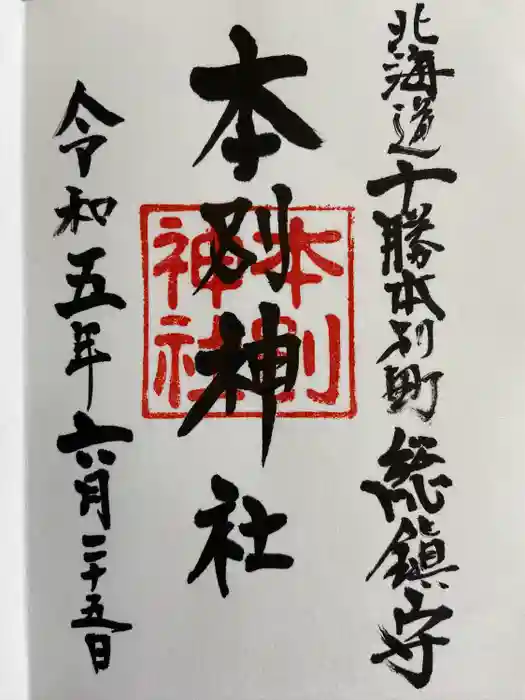 北海道十勝本別町総鎮守
本別神社
本別
神社
令和五年六月二十五日